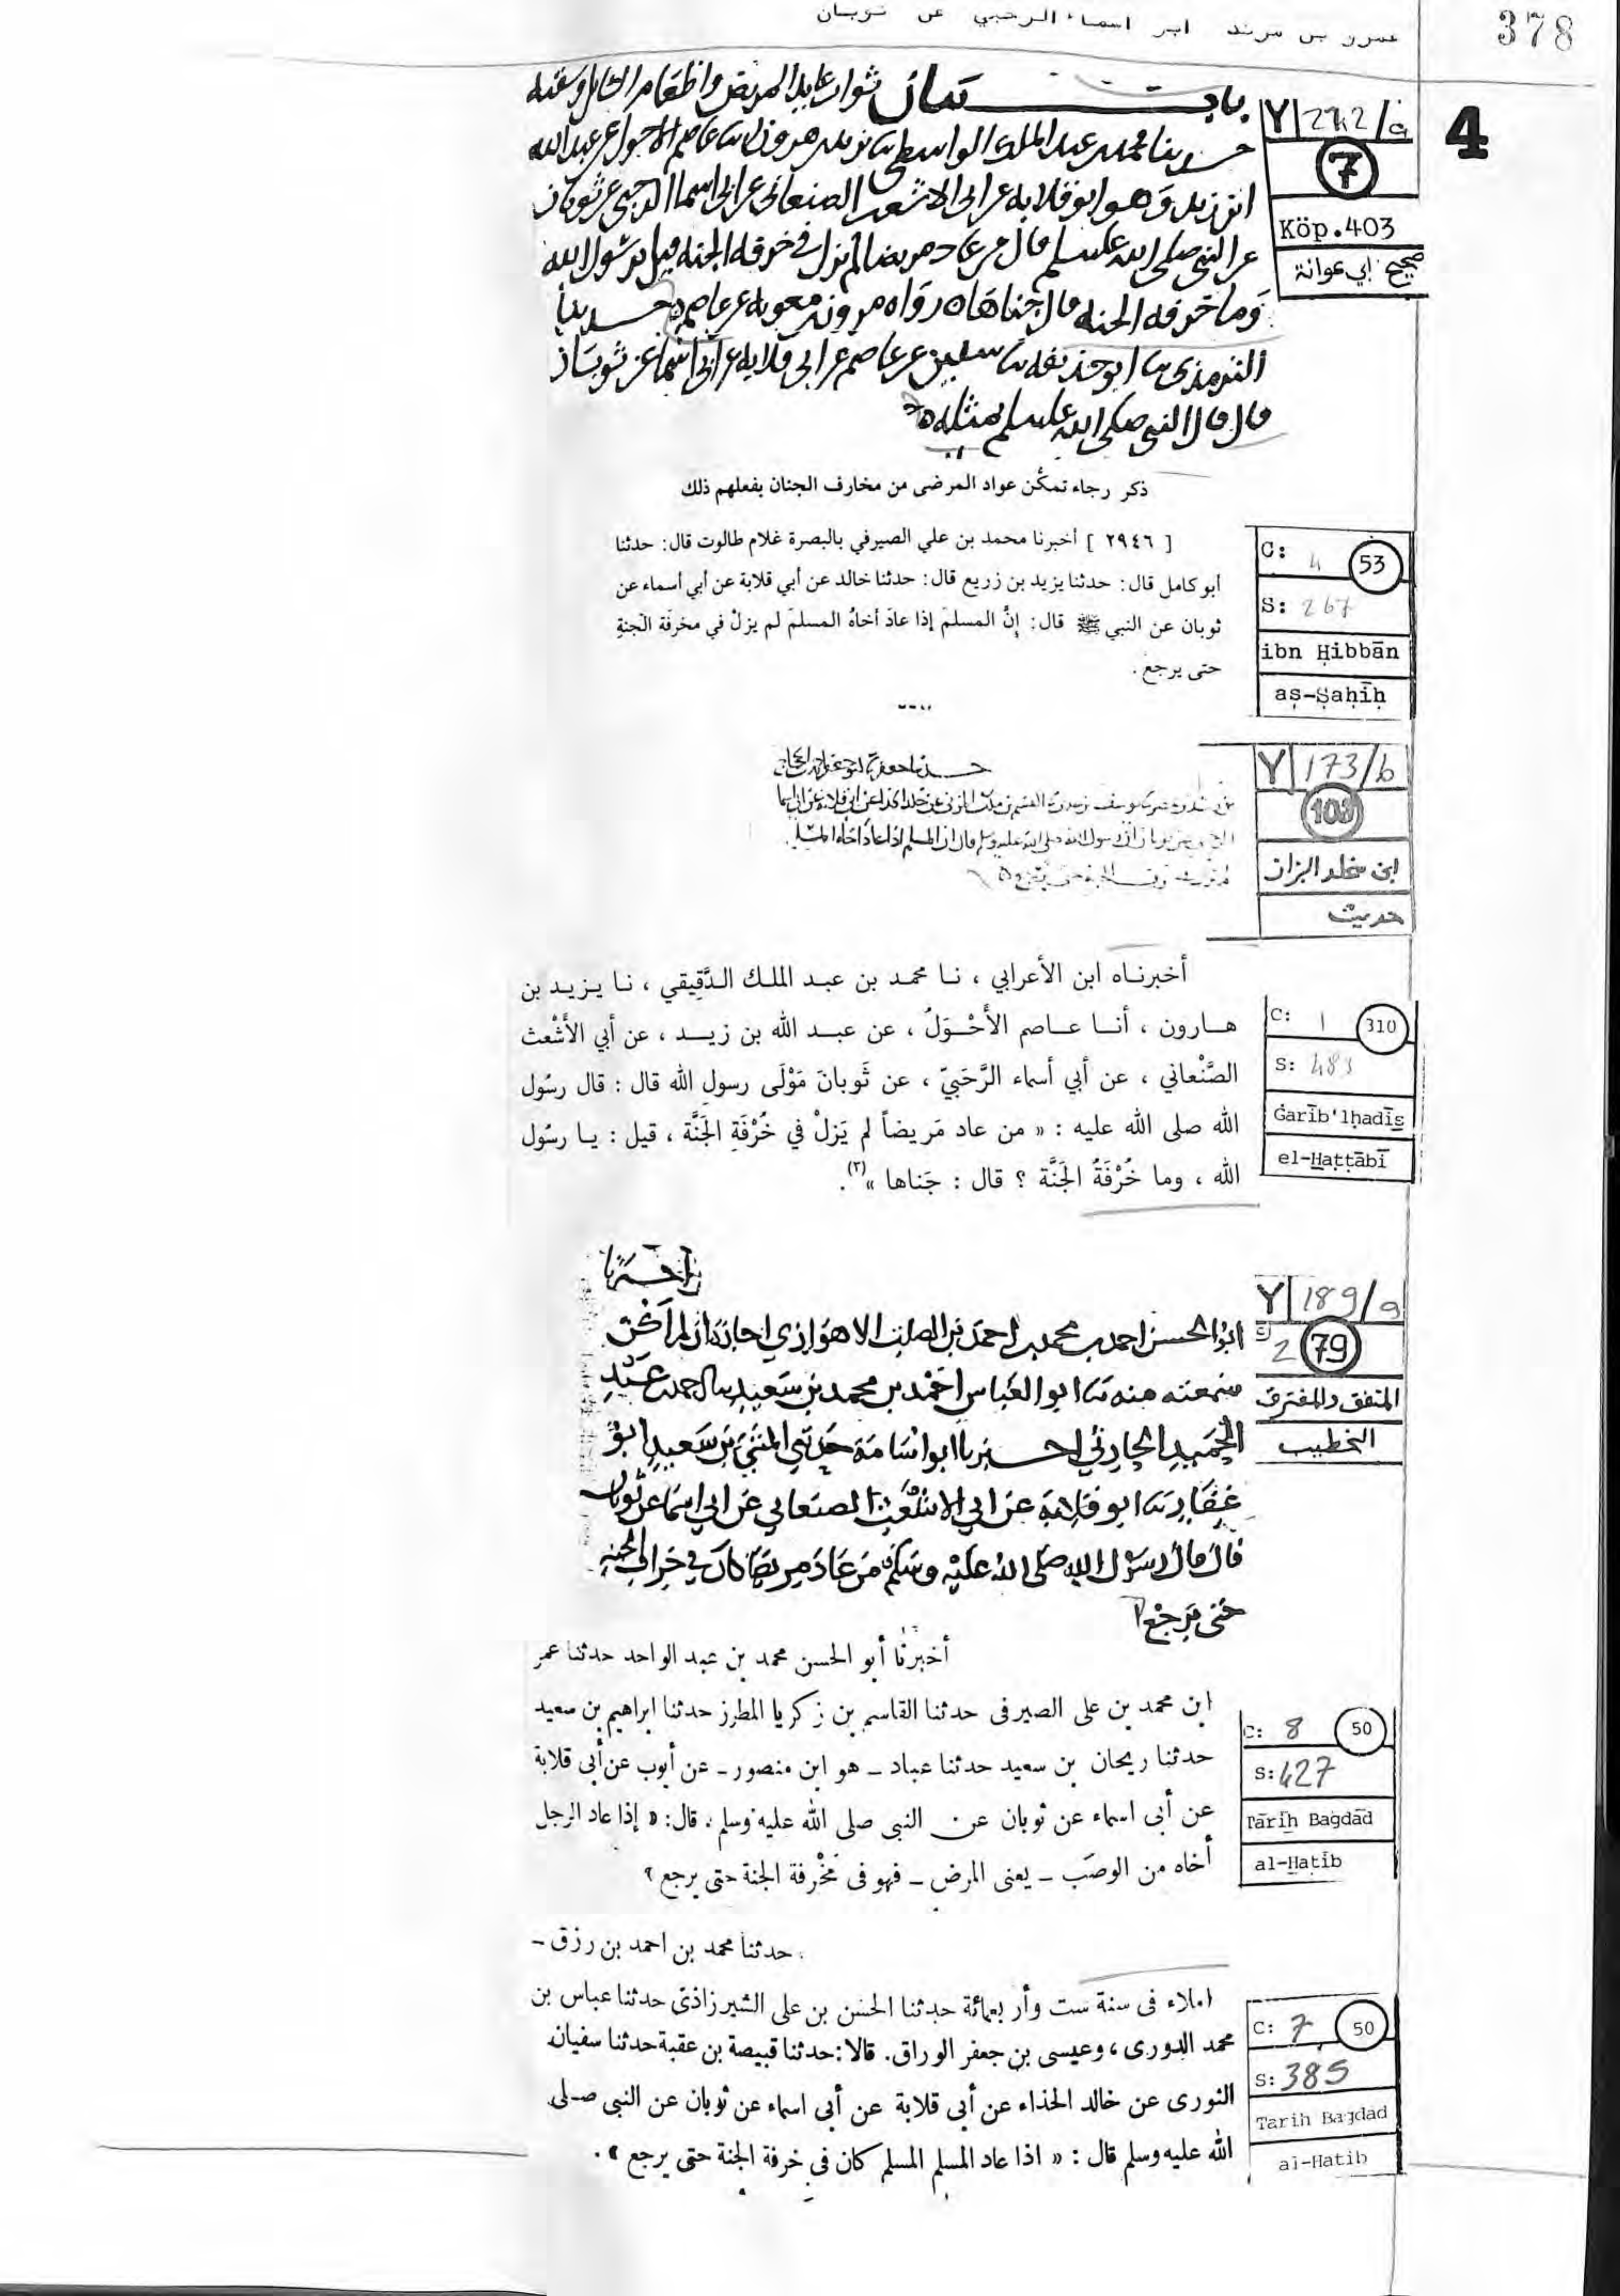 378
عمرو بن مرثد ابو اسماء الرحبي عن ثوبان
4
باب بيان ثواب عايد المريض واطعام السائل وسقيه
حدثنا محمد بن عبد الملك الواسطي ثنا يزيد بن هرون ثنا عاصم الاحول عن عبد الله
ابن زيد وهو ابو قلابه عن ابي الاشعث الصنعاني عن ابي اسما الرحبي عن ثوبان
عن النبي صلى الله عليه وسلم قال من عاد مريضا لم يزل في خرفه الجنه قيل يرسول الله
وما خرفه الجنه قال جناها رواه مرون بن معويه عن عاصم حدثنا
الترمذي ثنا ابو حذيفه ثنا سفين عن عاصم عن ابي قلابه عن ابي اسما عن ثوبان
قال قال النبي صلى الله عليه وسلم بمثله
Y 242/a
7
Köp.403
صحيح أبي عوانة
ذكر رجاء تمكّن عواد المرضى من مخارف الجنان بفعلهم ذلك
[ ٢٩٤٦ ] أخبرنا محمد بن علي الصيرفي بالبصرة غلام طالوت قال: حدثنا
أبو كامل قال: حدثنا يزيد بن زريع قال: حدثنا خالد عن أبي قلابة عن أبي أسماء عن
ثوبان عن النبي ﷺ قال: إنَّ المسلمَ إذا عادَ أخاهُ المسلمَ لم يزلْ في مخرفَة الجنةِ
حتى يرجع.
C: 4 53
S: 267
ibn Ḥibbān
aṣ-Ṣaḥīḥ
رسول الله صلى الله عليه وسلم قال ان المسلم اذا عاد اخاه المسلم
Y 173/b
103
ابن مخلد البزاز
حديث
أخبرنـاه ابن الأعرابي ، نـا محمـد بن عبـد الملـك الـدَّقِيقي ، نـا يـزيـد بن
هـارون ، أنـا عـاصم الأَحْـوَلُ ، عن عبـد الله بن زيـد ، عن أبي الأَشْعث
الصَّنْعاني ، عن أبي أسماء الرَّحَبيّ ، عن ثَوبانَ مَوْلَى رسول الله قال : قال رسُول
الله صلى الله عليه : « من عاد مَريضاً لم يَزلْ في خُرْفَةِ الجَنَّة ، قيل : يـا رسُول
الله ، وما خُرْفَةُ الجَنَّة ؟ قال : جَناها »(٣).
C: 1 310
S: 483
Ġarīb'lḥadīs̱
el-Ḫaṭṭābī
اخبرنا
ابو الحسن احمد بن محمد بن احمد بن الصلت الاهوازي اجازة ان لم اكن
سمعته منه ثنا ابو العباس احمد بن محمد بن سعيد ثنا احمد بن عبد
الحميد الحارثي اخبرنا ابو اسامة حدثني المثنى بن سعيد ابو
غفار ثنا ابو قلابة عن ابي الاشعث الصنعاني عن ابي اسما عن ثوبان
قال قال رسول الله صلى الله عليه وسلم من عاد مريضا كان في خراف الجنه
حتى يرجع
Y 189/a
2 79
المتفق والمفترق
الخطيب
أخبرنا أبو الحسن محمد بن عبد الواحد حدثنا عمر
ابن محمد بن على الصيرفى حدثنا القاسم بن زكريا المطرز حدثنا ابراهيم بن سعيد
حدثنا ريحان بن سعيد حدثنا عباد ـ هو ابن منصور ـ عن أيوب عن أبى قلابة
عن أبى اسماء عن ثوبان عن النبى صلى الله عليه وسلم ، قال: « إذا عاد الرجل
أخاه من الوصَب ـ يعنى المرض ـ فهو فى مَخْرفة الجنة حتى يرجع »
C: 8 50
S: 427
Tārīḫ Bagdād
al-Ḫaṭīb
. حدثنا محمد بن احمد بن رزق ـ
املاء فى سنة ست وأربعمائة حدثنا الحسن بن على الشيرزاذى حدثنا عباس بن
محمد الدورى ، وعيسى بن جعفر الوراق. قالا: حدثنا قبيصة بن عقبة حدثنا سفيان
الثورى عن خالد الحذاء عن أبى قلابة عن أبى اسماء عن ثوبان عن النبى صلى
الله عليه وسلم قال : « اذا عاد المسلم المسلم كان فى خرفة الجنة حتى يرجع » .
C: 7 50
S: 385
Tarih Bagdad
al-Hatib